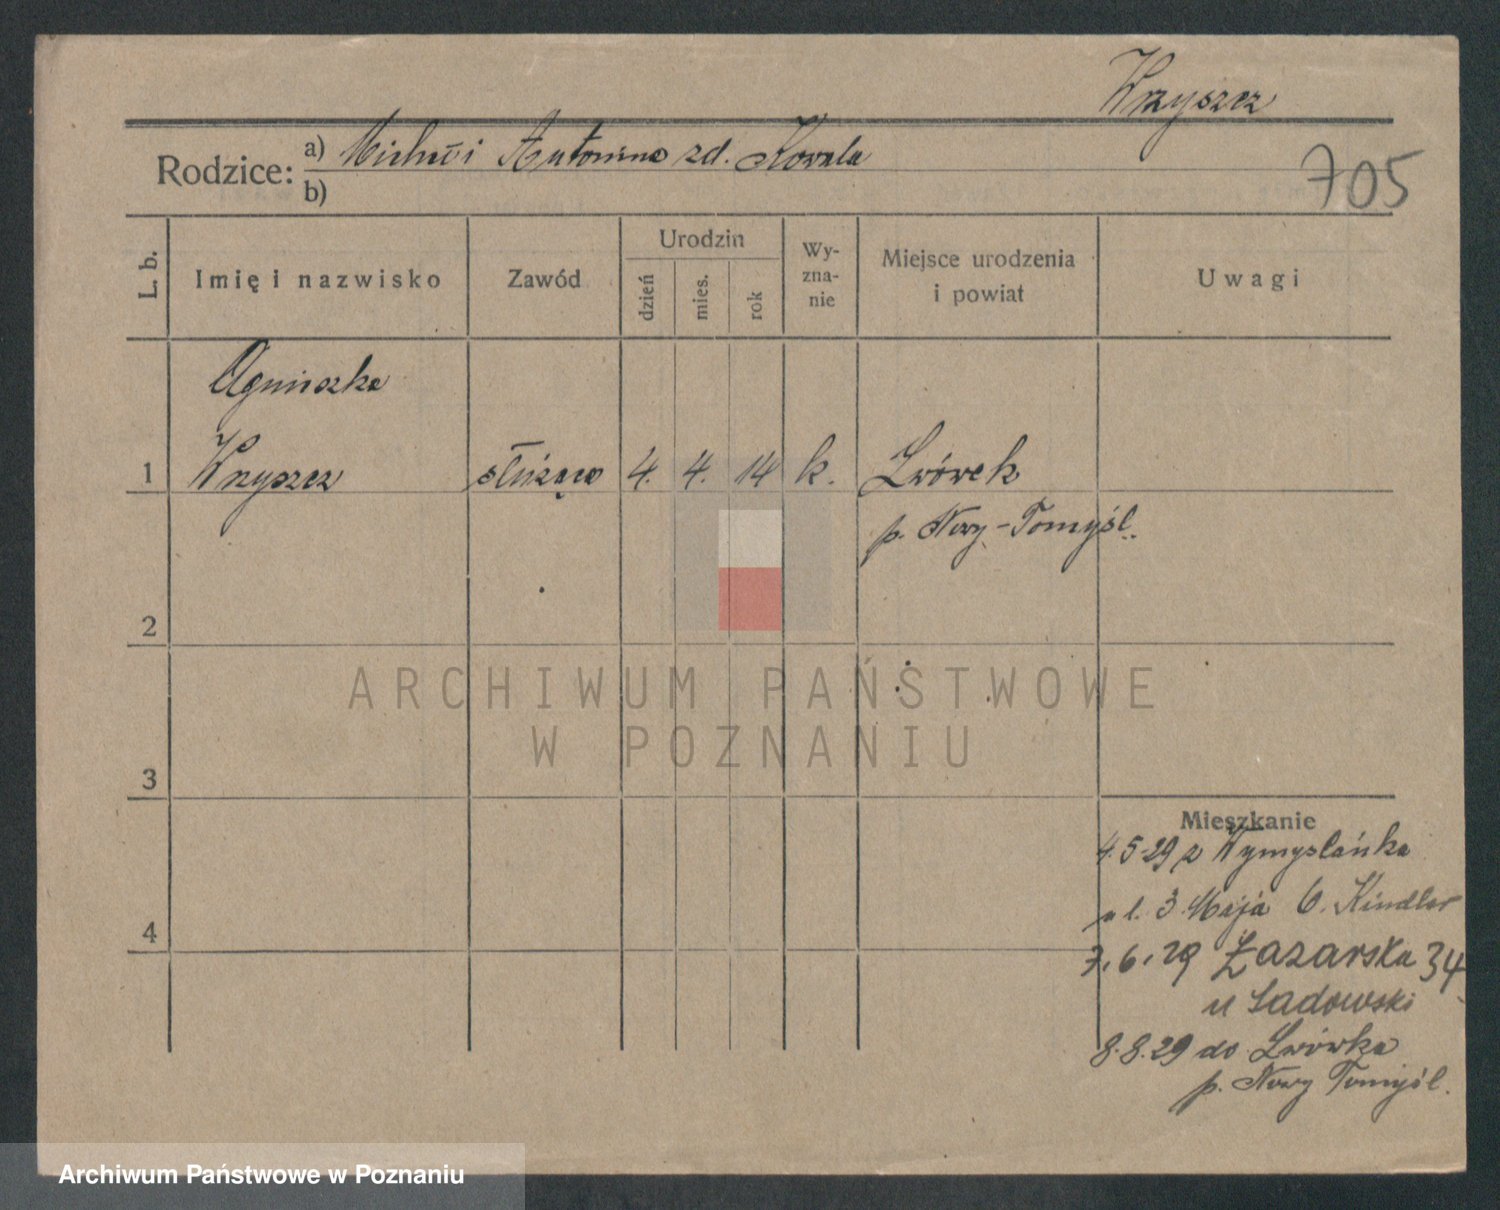 Wrzyszcz
Rodzice: a) Michał i Antonina zd. Kowala
b)
705
L. b.
Imię i nazwisko
Zawód
Urodzin
dzień
mies.
rok
Wy-
zna-
nie
Miejsce urodzenia
i powiat
Uwagi
Agnieszka
1 Wrzyszcz służąca 4. 4. 14 k. Lwówek
p. Nowy-Tomyśl.
2
ARCHIWUM PAŃSTWOWE
W POZNANIU
3
Mieszkanie
4.5.29 z Wymysłańka
ul. 3 Maja 6. Kindler
4
7.6.29 Łazarska 34
u Sadowski
8.8.29 do Lwówka
p. Nowy Tomyśl.
Archiwum Państwowe w Poznaniu